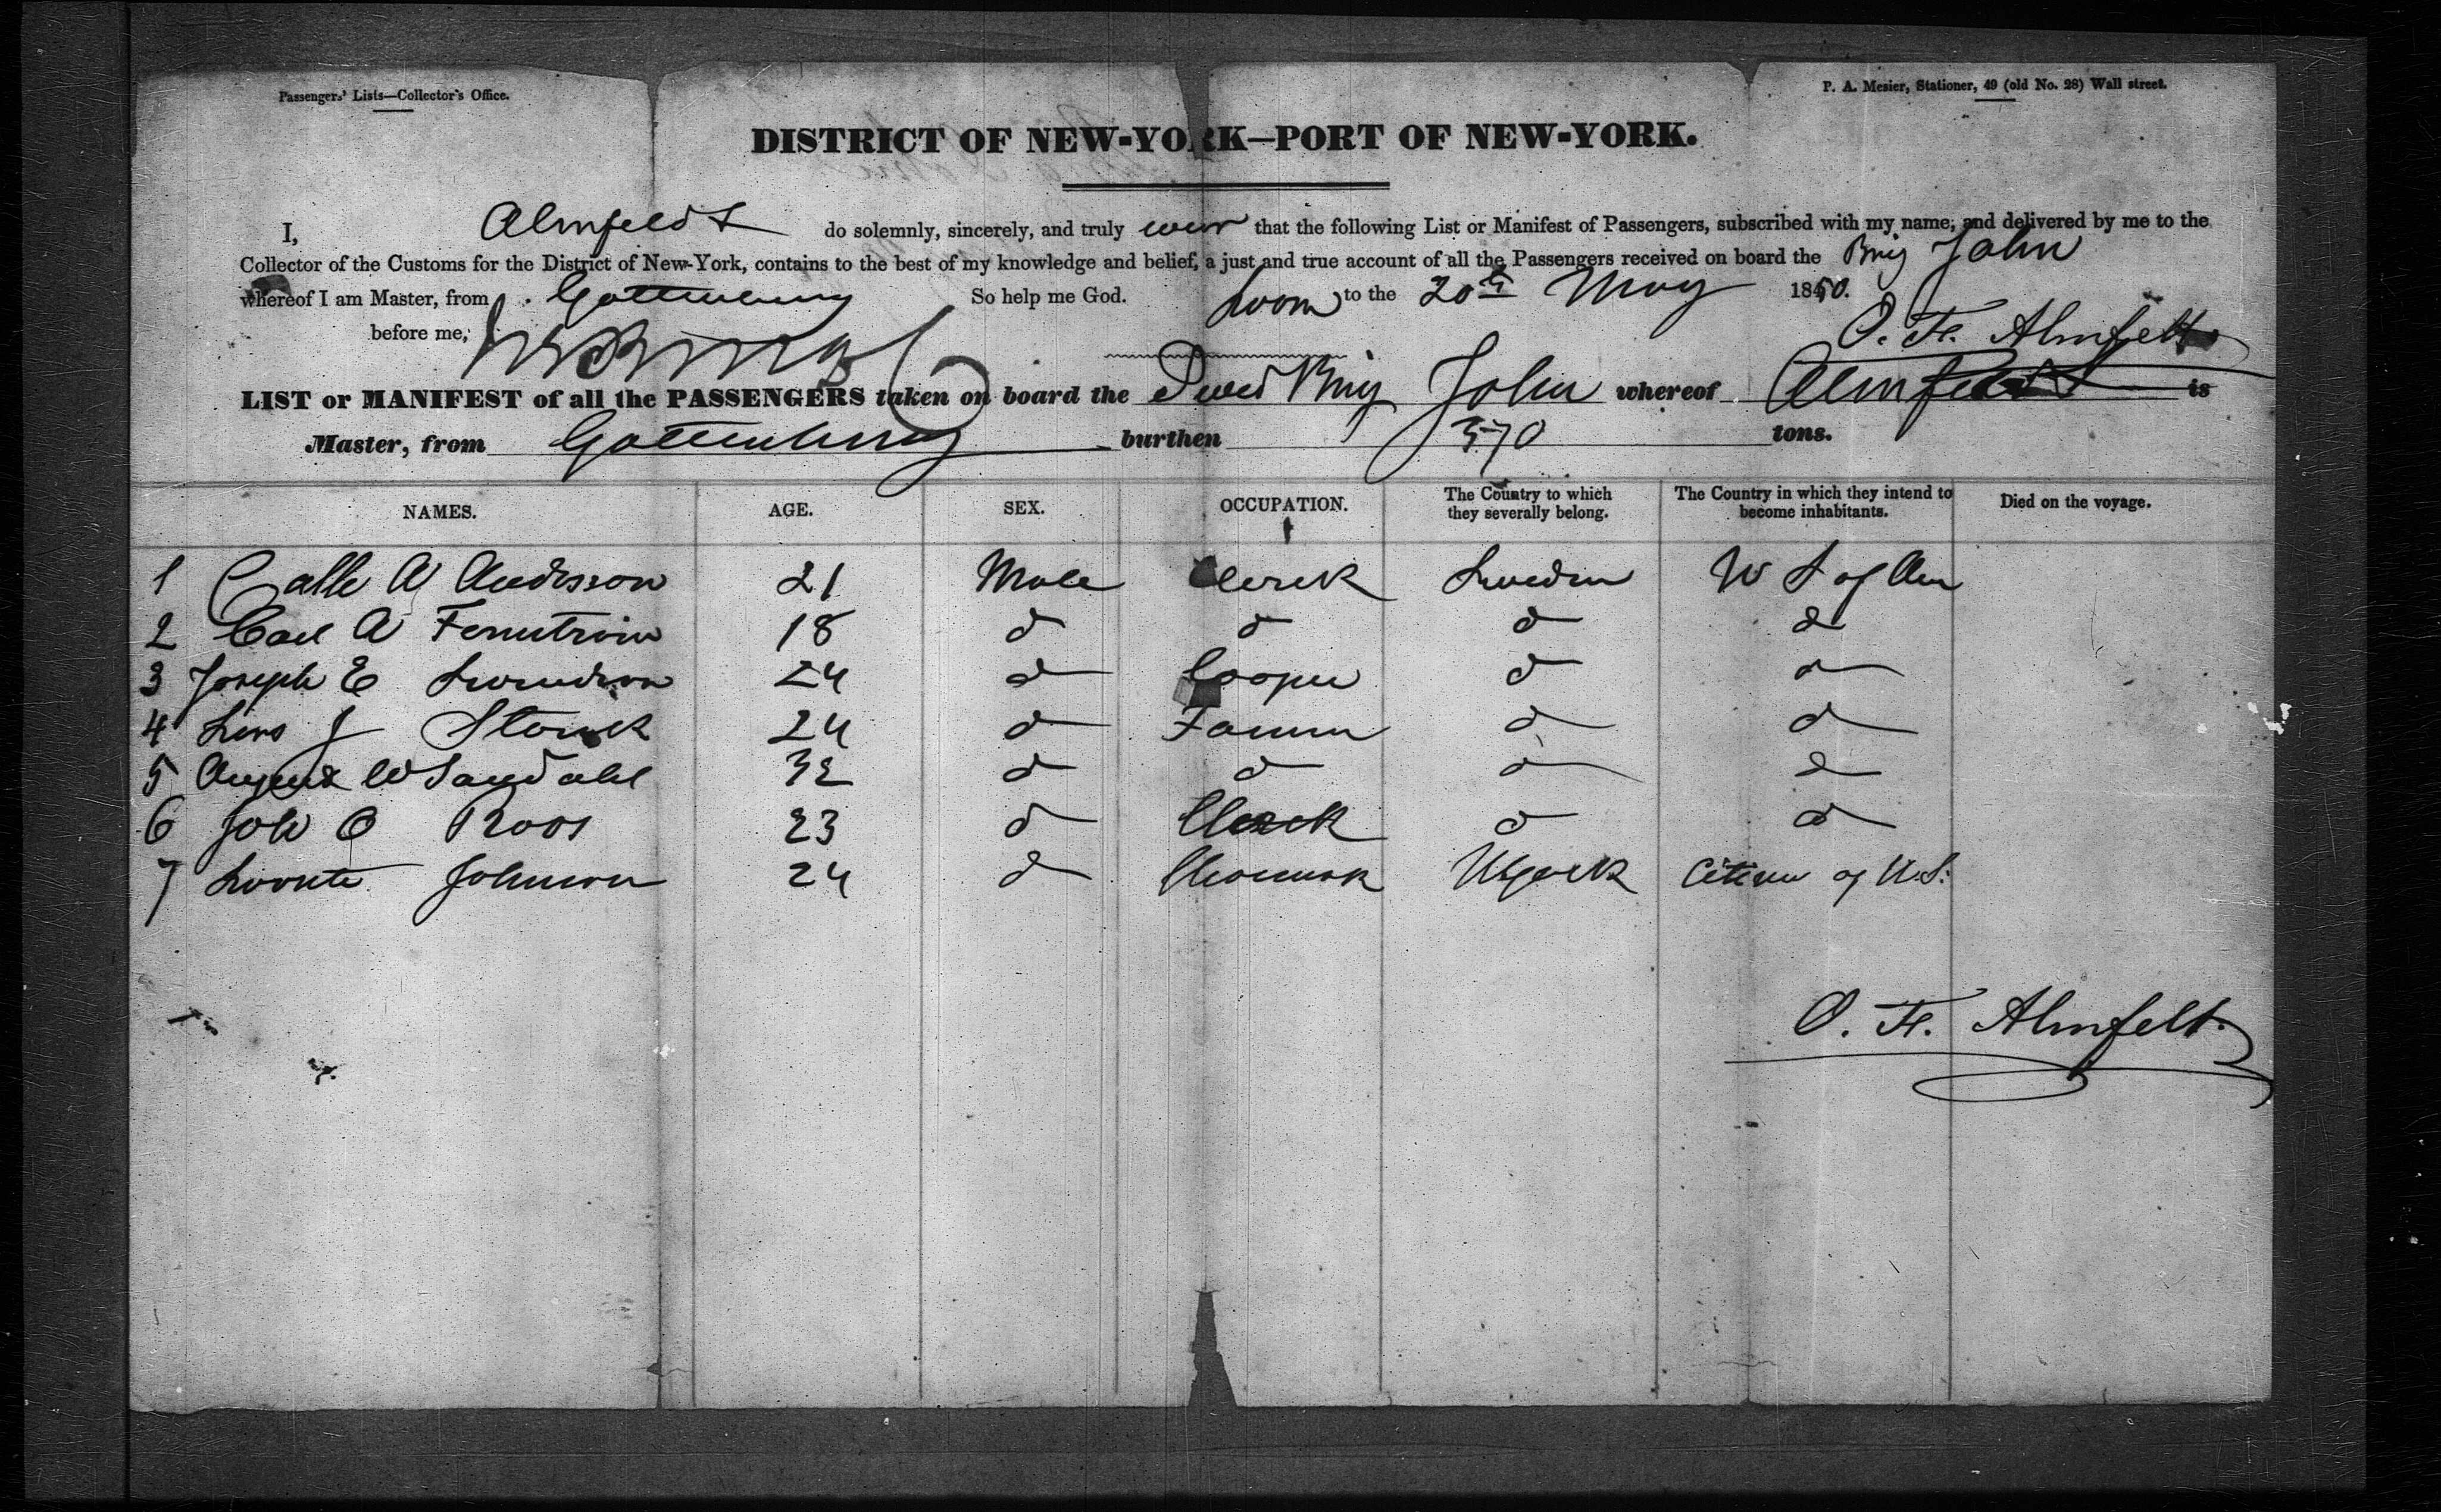 Passengers' Lists—Collector's Office.
P. A. Mesier, Stationer, 49 (old No. 28) Wall street.
DISTRICT OF NEW-YORK—PORT OF NEW-YORK.
I, Almfeldt do solemnly, sincerely, and truly that the following List or Manifest of Passengers, subscribed with my name, and delivered by me to the
Collector of the Customs for the District of New-York, contains to the best of my knowledge and belief, a just and true account of all the Passengers received on board the Brig John
whereof I am Master, from Gottenburg So help me God. Sworn to the 20th May 1850.
O. Fr. Almfelt
before me,
LIST or MANIFEST of all the PASSENGERS taken on board the Swed Brig John whereof Almfeldt is
Master, from Gottenburg burthen 370 tons.
NAMES. AGE. SEX. OCCUPATION. The Country to which they severally belong. The Country in which they intend to become inhabitants. Died on the voyage.
1 A Andersson 21 Male Clerk Sweden U S of Am
2 Carl A Fernström 18 d d d d
3 Joseph E Swendson 24 d Cooper d d
4 Lars J 24 d Farmer d d
5 August W Sandahl 32 d d d d
6 Joh O Roos 23 d Clerk d d
7 Johnson 24 d NYork Citizen of U.S.
O. Fr. Almfelt